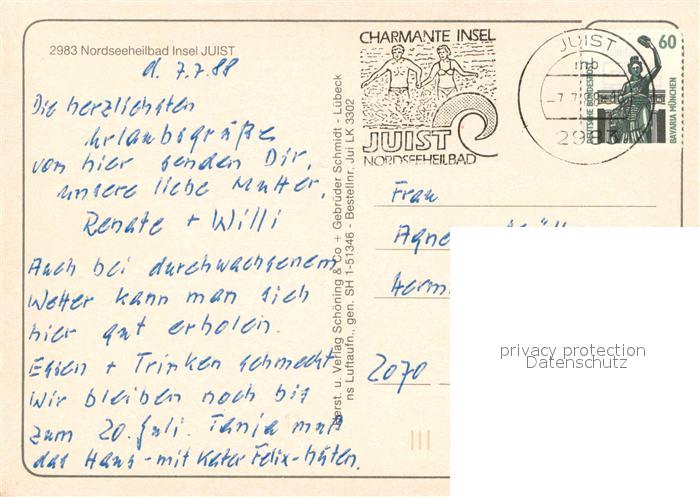 2983 Nordseeheilbad Insel JUIST
d. 7.7.88
Die herzlichsten
Urlaubsgrüße
von hier senden Dir,
unsere liebe Mutter,
Renate + Willi
Auch bei durchwachsenem
Wetter kann man sich
hier gut erholen.
Essen + Trinken schmeckt.
Wir bleiben noch bis
zum 20. Juli. Tanja muß
das Haus - mit Kater Felix - hüten.
Verlag Schöning & Co + Gebrüder Schmidt - Lübeck
ns Luftaufn., gen. SH 1-51346 - Bestellnr. Jui LK 3302
CHARMANTE INSEL
JUIST
NORDSEEHEILBAD
JUIST
mb
2983
60
DEUTSCHE BUNDESPOST
BAVARIA MÜNCHEN
Frau
2070
privacy protection
Datenschutz